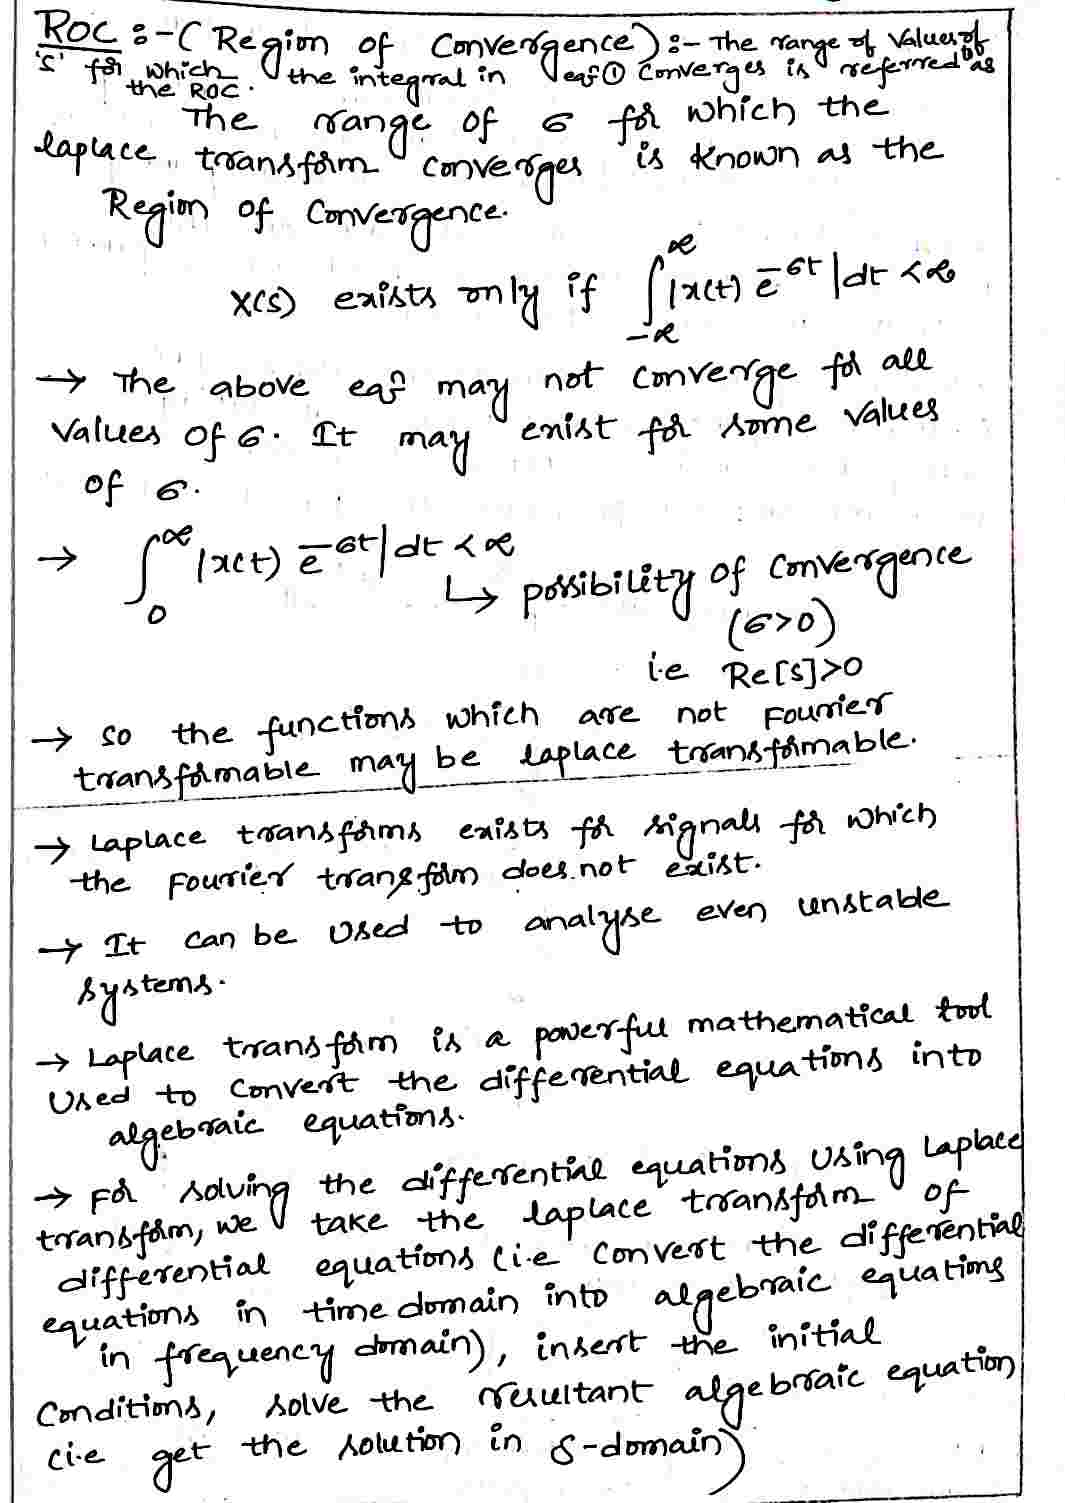 ROC :-( Region of Convergence) :- The range of values of
's' for which the integral in eqn ① converges is referred to as
the ROC.
The range of σ for which the
laplace transform converges is known as the
Region of Convergence.
X(s) exists only if ∫_{-∞}^{∞} |x(t) e^{-σt}| dt < ∞
→ The above eqn may not converge for all
values of σ. It may exist for some values
of σ.
→ ∫_{0}^{∞} |x(t) e^{-σt}| dt < ∞
↳ possibility of convergence
(σ>0)
i.e Re[s]>0
→ so the functions which are not Fourier
transformable may be laplace transformable.
→ Laplace transforms exists for signals for which
the Fourier transform does not exist.
→ It can be used to analyse even unstable
systems.
→ Laplace transform is a powerful mathematical tool
used to convert the differential equations into
algebraic equations.
→ For solving the differential equations using Laplace
transform, we take the laplace transform of
differential equations (i.e convert the differential
equations in time domain into algebraic equations
in frequency domain), insert the initial
Conditions, solve the resultant algebraic equation
(i.e get the solution in S-domain)